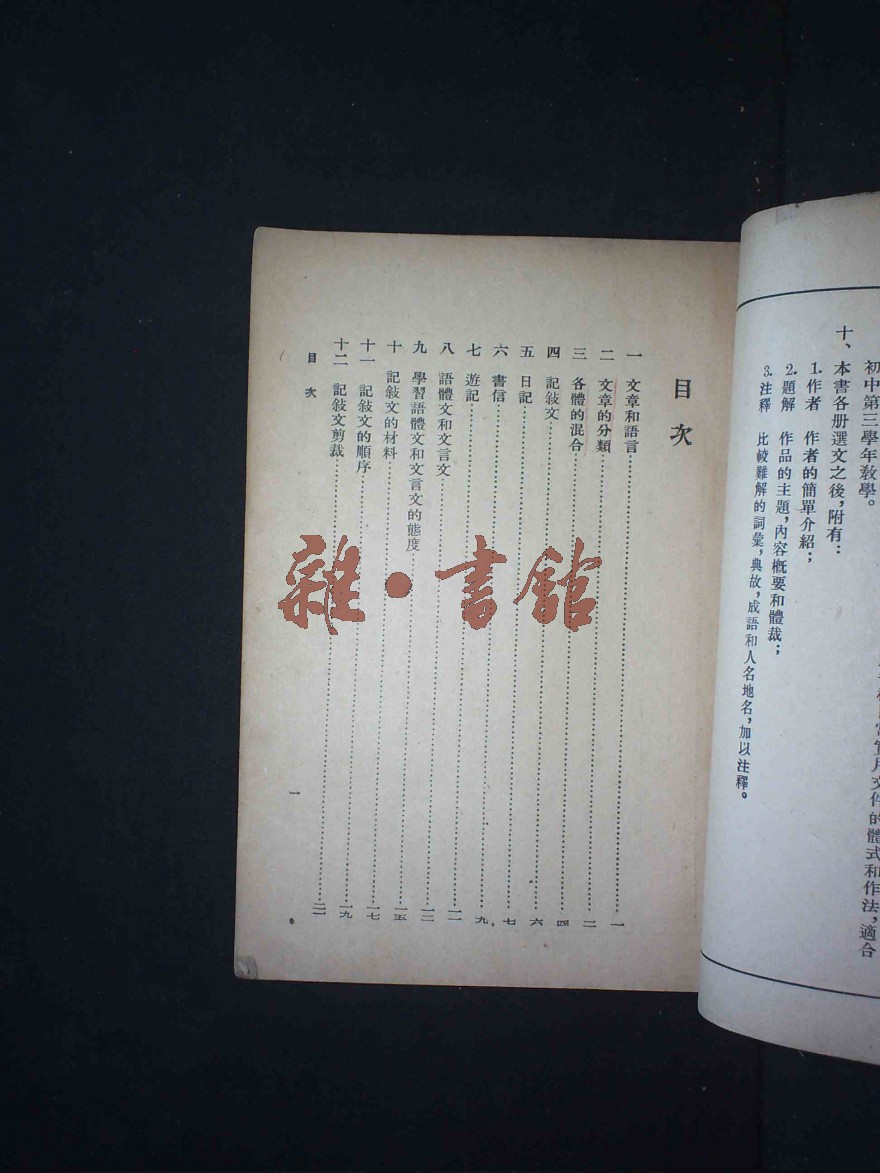 初中第三學年敎學。
十、本書各册選文之後，附有：
1. 作者　作者的簡單介紹；
2. 題解　作品的主題，內容概要和體裁；
3. 注釋　比較難解的詞彙，典故，成語和人名地名，加以注釋。
實用文件的體式和作法，適合
目次
一　文章和語言……一
二　文章的分類……二
三　各體的混合……四
四　記敍文……六
五　日記……七
六　書信……九
七　遊記……一一
八　語體文和文言文……一三
九　學習語體文和文言文的態度……一五
十　記敍文的材料……一七
十一　記敍文的順序……一九
十二　記敍文剪裁……二一
目次
一
雜·書館